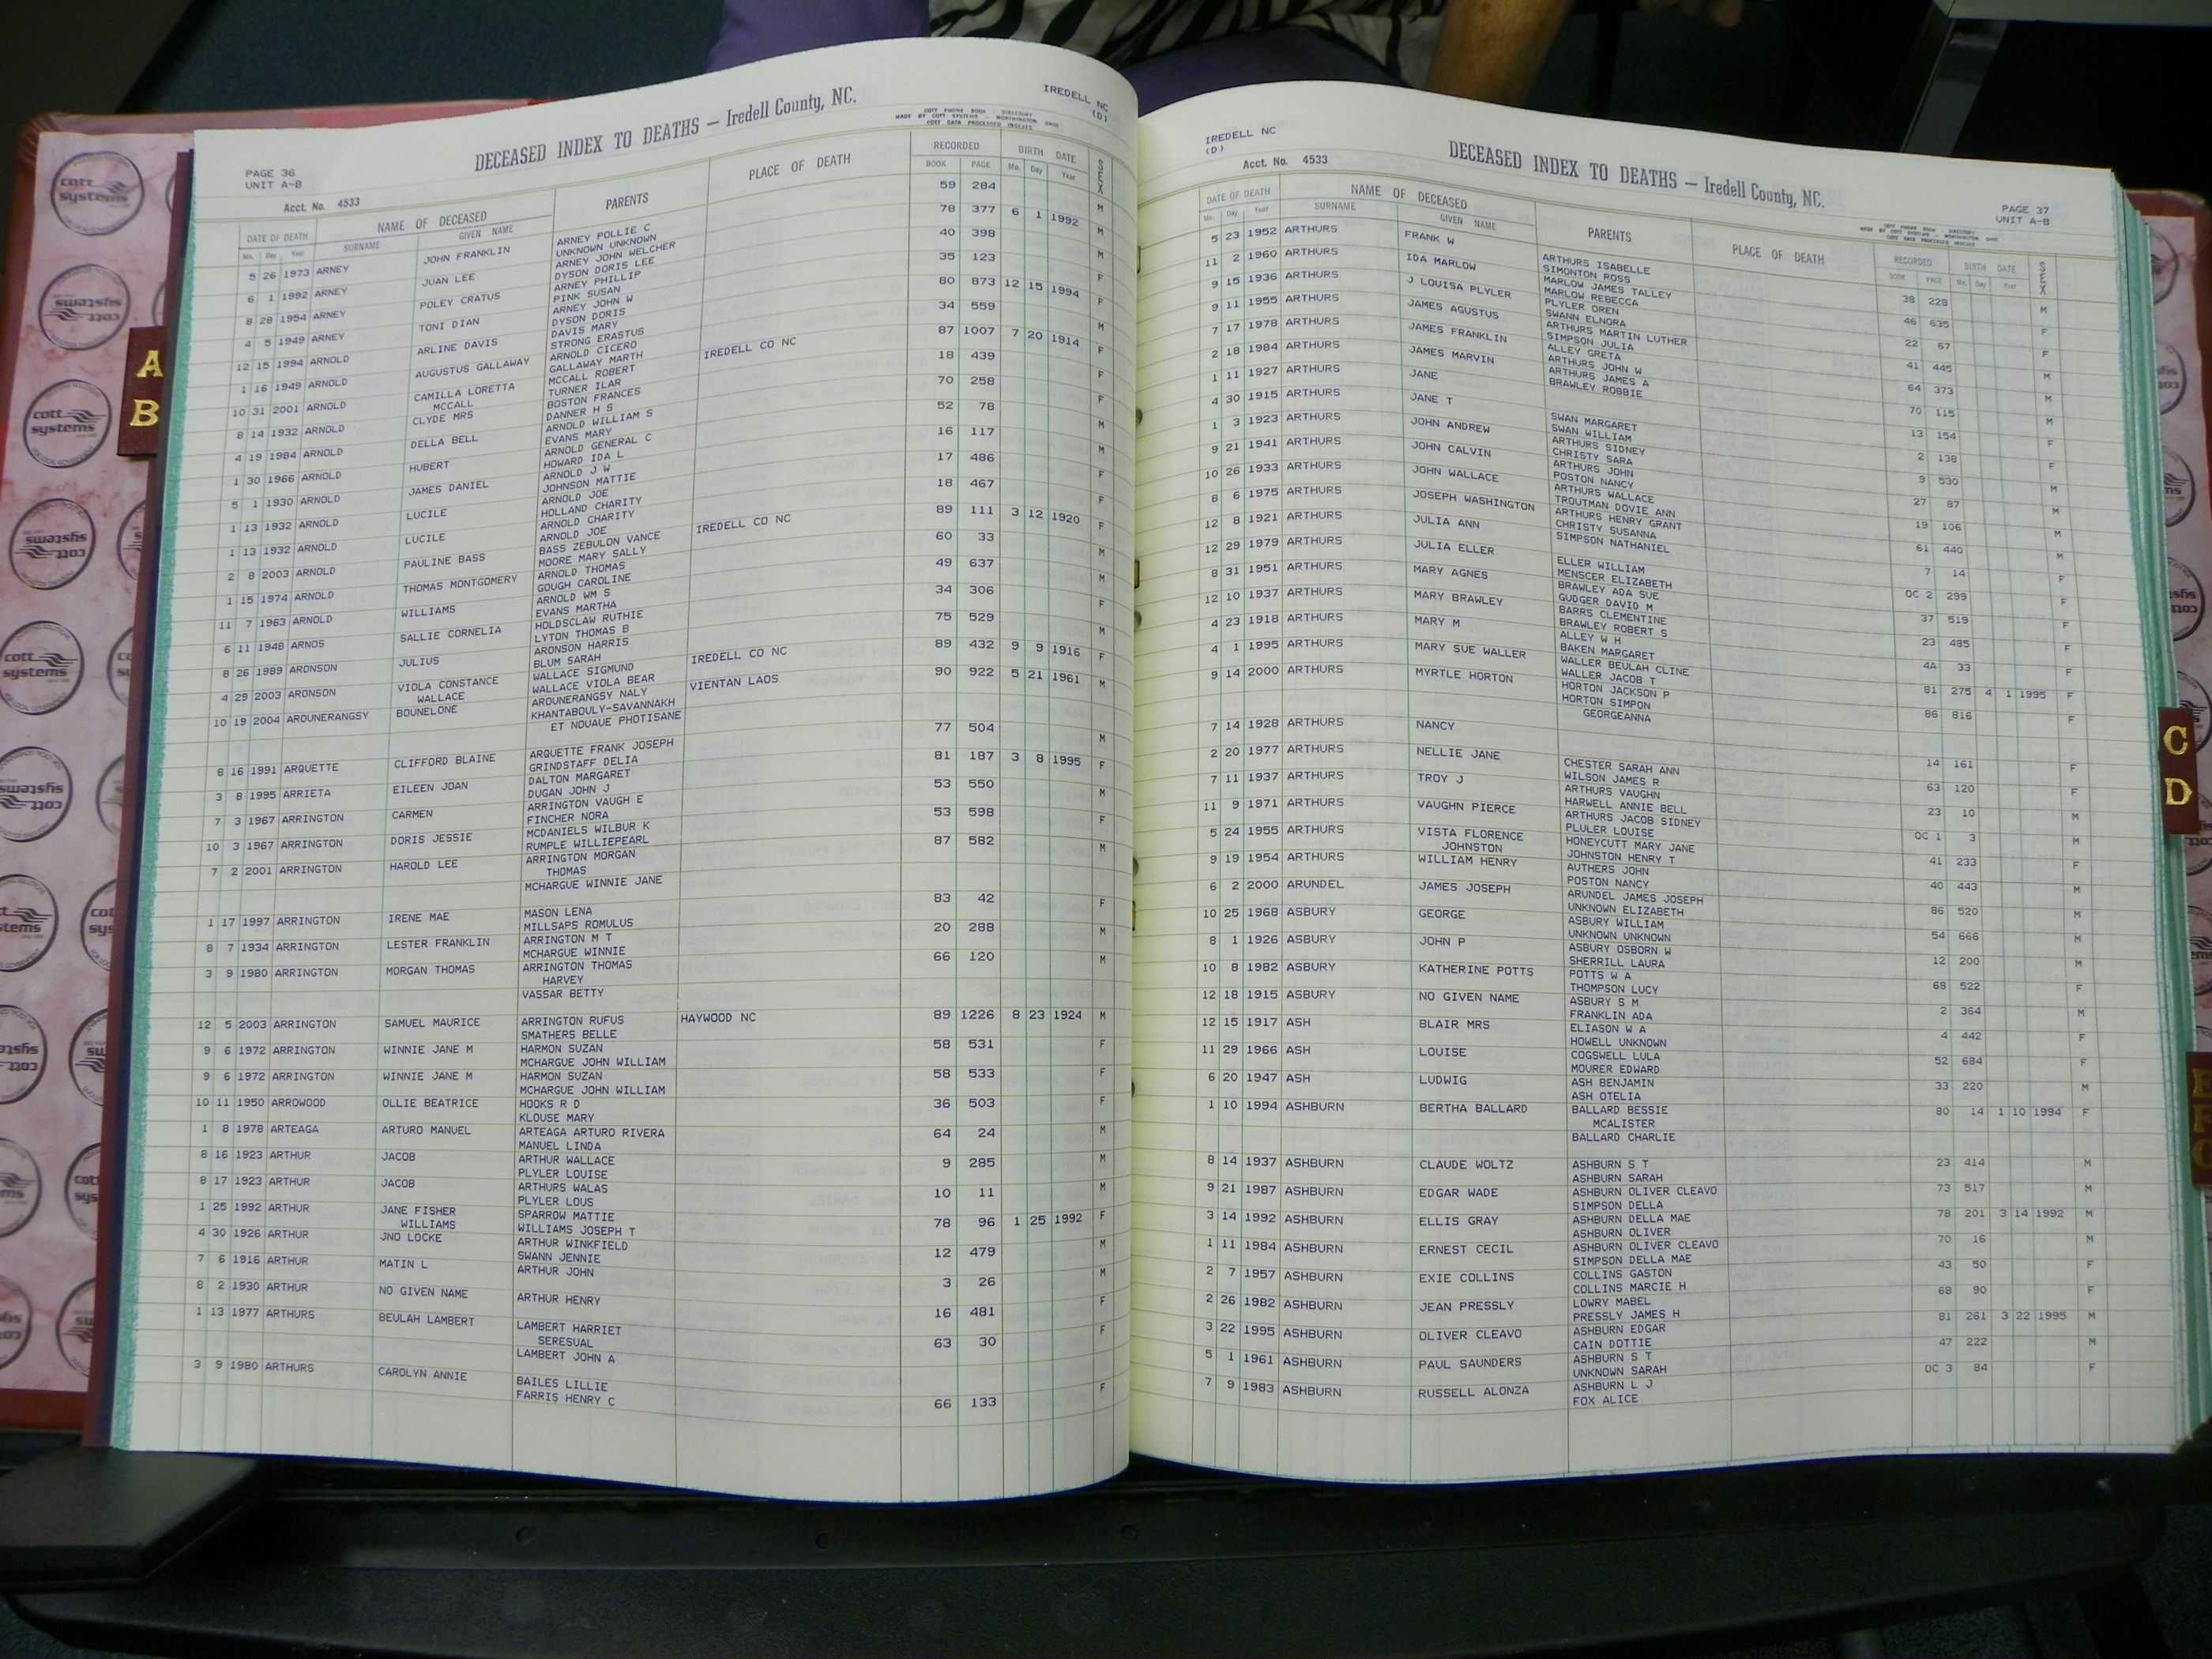 IREDELL NC
(D)
DECEASED INDEX TO DEATHS — Iredell County, NC.
COTT PHONE BOOK - DIRECTORY
MADE BY COTT SYSTEMS - WORTHINGTON, OHIO
COTT DATA PROCESSED INDEXES
PAGE 36
UNIT A-B
Acct. No. 4533
DATE OF DEATH NAME OF DECEASED PARENTS PLACE OF DEATH RECORDED BIRTH DATE SEX
Mo. Day Year SURNAME GIVEN NAME BOOK PAGE Mo. Day Year
5 26 1973 ARNEY JOHN FRANKLIN ARNEY POLLIE C 59 284 M
UNKNOWN UNKNOWN
6 1 1992 ARNEY JUAN LEE ARNEY JOHN WELCHER 78 377 6 1 1992 M
DYSON DORIS LEE
8 28 1954 ARNEY POLEY CRATUS ARNEY PHILLIP 40 398 M
PINK SUSAN
4 5 1949 ARNEY TONI DIAN ARNEY JOHN W 35 123 F
DYSON DORIS
12 15 1994 ARNOLD ARLINE DAVIS DAVIS MARY 80 873 12 15 1994 F
STRONG ERASTUS
1 16 1949 ARNOLD AUGUSTUS GALLAWAY ARNOLD CICERO 34 559 M
GALLAWAY MARTH
10 31 2001 ARNOLD CAMILLA LORETTA MCCALL ROBERT IREDELL CO NC 87 1007 7 20 1914 F
MCCALL TURNER ILAR
8 14 1932 ARNOLD CLYDE MRS BOSTON FRANCES 18 439 F
DANNER H S
4 19 1984 ARNOLD DELLA BELL ARNOLD WILLIAM S 70 258 F
EVANS MARY
1 30 1966 ARNOLD HUBERT ARNOLD GENERAL C 52 78 M
HOWARD IDA L
5 1 1930 ARNOLD JAMES DANIEL ARNOLD J W 16 117 M
JOHNSON MATTIE
1 13 1932 ARNOLD LUCILE ARNOLD JOE 17 486 F
HOLLAND CHARITY
1 13 1932 ARNOLD LUCILE ARNOLD CHARITY 18 467 F
ARNOLD JOE
2 8 2003 ARNOLD PAULINE BASS BASS ZEBULON VANCE IREDELL CO NC 89 111 3 12 1920 F
MOORE MARY SALLY
1 15 1974 ARNOLD THOMAS MONTGOMERY ARNOLD THOMAS 60 33 M
GOUGH CAROLINE
11 7 1963 ARNOLD WILLIAMS ARNOLD WM S 49 637 M
EVANS MARTHA
6 11 1948 ARNOS SALLIE CORNELIA HOLDSCLAW RUTHIE 34 306 F
LYTON THOMAS B
8 26 1989 ARONSON JULIUS ARONSON HARRIS 75 529 M
BLUM SARAH
4 29 2003 ARONSON VIOLA CONSTANCE WALLACE SIGMUND IREDELL CO NC 89 432 9 9 1916 F
WALLACE WALLACE VIOLA BEAR
10 19 2004 AROUNERANGSY BOUNELONE AROUNERANGSY NALY VIENTAN LAOS 90 922 5 21 1961 M
KHANTABOULY-SAVANNAKH
ET NOUAUE PHOTISANE
8 16 1991 ARQUETTE CLIFFORD BLAINE ARQUETTE FRANK JOSEPH 77 504 M
GRINDSTAFF DELIA
3 8 1995 ARRIETA EILEEN JOAN DALTON MARGARET 81 187 3 8 1995 F
DUGAN JOHN J
7 3 1967 ARRINGTON CARMEN ARRINGTON VAUGH E 53 550 M
FINCHER NORA
10 3 1967 ARRINGTON DORIS JESSIE MCDANIELS WILBUR K 53 598 F
RUMPLE WILLIEPEARL
7 2 2001 ARRINGTON HAROLD LEE ARRINGTON MORGAN 87 582 M
THOMAS
MCHARGUE WINNIE JANE
1 17 1997 ARRINGTON IRENE MAE MASON LENA 83 42 F
MILLSAPS ROMULUS
8 7 1934 ARRINGTON LESTER FRANKLIN ARRINGTON M T 20 288 M
MCHARGUE WINNIE
3 9 1980 ARRINGTON MORGAN THOMAS ARRINGTON THOMAS 66 120 M
HARVEY
VASSAR BETTY
12 5 2003 ARRINGTON SAMUEL MAURICE ARRINGTON RUFUS HAYWOOD NC 89 1226 8 23 1924 M
SMATHERS BELLE
9 6 1972 ARRINGTON WINNIE JANE M HARMON SUZAN 58 531 F
MCHARGUE JOHN WILLIAM
9 6 1972 ARRINGTON WINNIE JANE M HARMON SUZAN 58 533 F
MCHARGUE JOHN WILLIAM
10 11 1950 ARROWOOD OLLIE BEATRICE HOOKS R D 36 503 F
KLOUSE MARY
1 8 1978 ARTEAGA ARTURO MANUEL ARTEAGA ARTURO RIVERA 64 24 M
MANUEL LINDA
8 16 1923 ARTHUR JACOB ARTHUR WALLACE 9 285 M
PLYLER LOUISE
8 17 1923 ARTHUR JACOB ARTHURS WALAS 10 11 M
PLYLER LOUS
1 25 1992 ARTHUR JANE FISHER SPARROW MATTIE 78 96 1 25 1992 F
WILLIAMS WILLIAMS JOSEPH T
4 30 1926 ARTHUR JNO LOCKE ARTHUR WINKFIELD 12 479 M
SWANN JENNIE
7 6 1916 ARTHUR MATIN L ARTHUR JOHN 3 26 M
8 2 1930 ARTHUR NO GIVEN NAME ARTHUR HENRY 16 481 F
1 13 1977 ARTHURS BEULAH LAMBERT LAMBERT HARRIET 63 30 F
SERESUAL
LAMBERT JOHN A
3 9 1980 ARTHURS CAROLYN ANNIE BAILES LILLIE 66 133 F
FARRIS HENRY C
IREDELL NC
(D)
Acct. No. 4533
DECEASED INDEX TO DEATHS — Iredell County, NC.
PAGE 37
UNIT A-B
COTT PHONE BOOK - DIRECTORY
MADE BY COTT SYSTEMS - WORTHINGTON, OHIO
COTT DATA PROCESSED INDEXES
DATE OF DEATH NAME OF DECEASED PARENTS PLACE OF DEATH RECORDED BIRTH DATE SEX
Mo. Day Year SURNAME GIVEN NAME BOOK PAGE Mo. Day Year
5 23 1952 ARTHURS FRANK W ARTHURS ISABELLE 38 228 M
SIMONTON ROSS
11 2 1960 ARTHURS IDA MARLOW MARLOW JAMES TALLEY 46 635 F
MARLOW REBECCA
9 15 1936 ARTHURS J LOUISA PLYLER PLYLER OREN 22 67 F
SWANN ELNORA
9 11 1955 ARTHURS JAMES AGUSTUS ARTHURS MARTIN LUTHER 41 445 M
SIMPSON JULIA
7 17 1978 ARTHURS JAMES FRANKLIN ALLEY GRETA 64 373 M
ARTHURS JOHN W
2 18 1984 ARTHURS JAMES MARVIN ARTHURS JAMES A 70 115 M
BRAWLEY ROBBIE
1 11 1927 ARTHURS JANE 13 154 F
4 30 1915 ARTHURS JANE T SWAN MARGARET 2 138 F
SWAN WILLIAM
1 3 1923 ARTHURS JOHN ANDREW ARTHURS SIDNEY 9 530 M
CHRISTY SARA
9 21 1941 ARTHURS JOHN CALVIN ARTHURS JOHN 27 87 M
POSTON NANCY
10 26 1933 ARTHURS JOHN WALLACE ARTHURS WALLACE 19 106 M
TROUTMAN DOVIE ANN
8 6 1975 ARTHURS JOSEPH WASHINGTON ARTHURS HENRY GRANT 61 440 M
CHRISTY SUSANNA
12 8 1921 ARTHURS JULIA ANN SIMPSON NATHANIEL 7 14 F
12 29 1979 ARTHURS JULIA ELLER ELLER WILLIAM OC 2 299 F
MENSCER ELIZABETH
8 31 1951 ARTHURS MARY AGNES BRAWLEY ADA SUE 37 519 F
GUDGER DAVID M
12 10 1937 ARTHURS MARY BRAWLEY BARRS CLEMENTINE 23 485 F
BRAWLEY ROBERT S
4 23 1918 ARTHURS MARY M ALLEY W H 4A 33 F
BAKEN MARGARET
4 1 1995 ARTHURS MARY SUE WALLER WALLER BEULAH CLINE 81 275 4 1 1995 F
WALLER JACOB T
9 14 2000 ARTHURS MYRTLE HORTON HORTON JACKSON P 86 816 F
HORTON SIMPON
GEORGEANNA
7 14 1928 ARTHURS NANCY 14 161 F
2 20 1977 ARTHURS NELLIE JANE CHESTER SARAH ANN 63 120 F
WILSON JAMES R
7 11 1937 ARTHURS TROY J ARTHURS VAUGHN 23 10 M
HARWELL ANNIE BELL
11 9 1971 ARTHURS VAUGHN PIERCE ARTHURS JACOB SIDNEY OC 1 3 M
PLULER LOUISE
5 24 1955 ARTHURS VISTA FLORENCE HONEYCUTT MARY JANE 41 233 F
JOHNSTON JOHNSTON HENRY T
9 19 1954 ARTHURS WILLIAM HENRY AUTHERS JOHN 40 443 M
POSTON NANCY
6 2 2000 ARUNDEL JAMES JOSEPH ARUNDEL JAMES JOSEPH 86 520 M
UNKNOWN ELIZABETH
10 25 1968 ASBURY GEORGE ASBURY WILLIAM 54 666 M
UNKNOWN UNKNOWN
8 1 1926 ASBURY JOHN P ASBURY OSBORN W 12 200 M
SHERRILL LAURA
10 8 1982 ASBURY KATHERINE POTTS POTTS W A 68 522 F
THOMPSON LUCY
12 18 1915 ASBURY NO GIVEN NAME ASBURY S M 2 364 M
FRANKLIN ADA
12 15 1917 ASH BLAIR MRS ELIASON W A 4 442 F
HOWELL UNKNOWN
11 29 1966 ASH LOUISE COGSWELL LULA 52 684 F
MOURER EDWARD
6 20 1947 ASH LUDWIG ASH BENJAMIN 33 220 M
ASH OTELIA
1 10 1994 ASHBURN BERTHA BALLARD BALLARD BESSIE 80 14 1 10 1994 F
MCALISTER
BALLARD CHARLIE
8 14 1937 ASHBURN CLAUDE WOLTZ ASHBURN S T 23 414 M
ASHBURN SARAH
9 21 1987 ASHBURN EDGAR WADE ASHBURN OLIVER CLEAVO 73 517 M
SIMPSON DELLA
3 14 1992 ASHBURN ELLIS GRAY ASHBURN DELLA MAE 78 201 3 14 1992 M
ASHBURN OLIVER
1 11 1984 ASHBURN ERNEST CECIL ASHBURN OLIVER CLEAVO 70 16 M
SIMPSON DELLA MAE
2 7 1957 ASHBURN EXIE COLLINS COLLINS GASTON 43 50 F
COLLINS MARCIE H
2 26 1982 ASHBURN JEAN PRESSLY LOWRY MABEL 68 90 F
PRESSLY JAMES H
3 22 1995 ASHBURN OLIVER CLEAVO ASHBURN EDGAR 81 261 3 22 1995 M
CAIN DOTTIE
5 1 1961 ASHBURN PAUL SAUNDERS ASHBURN S T 47 222 M
UNKNOWN SARAH
7 9 1983 ASHBURN RUSSELL ALONZA ASHBURN L J OC 3 84 F
FOX ALICE
A
B
C
D
cott systems